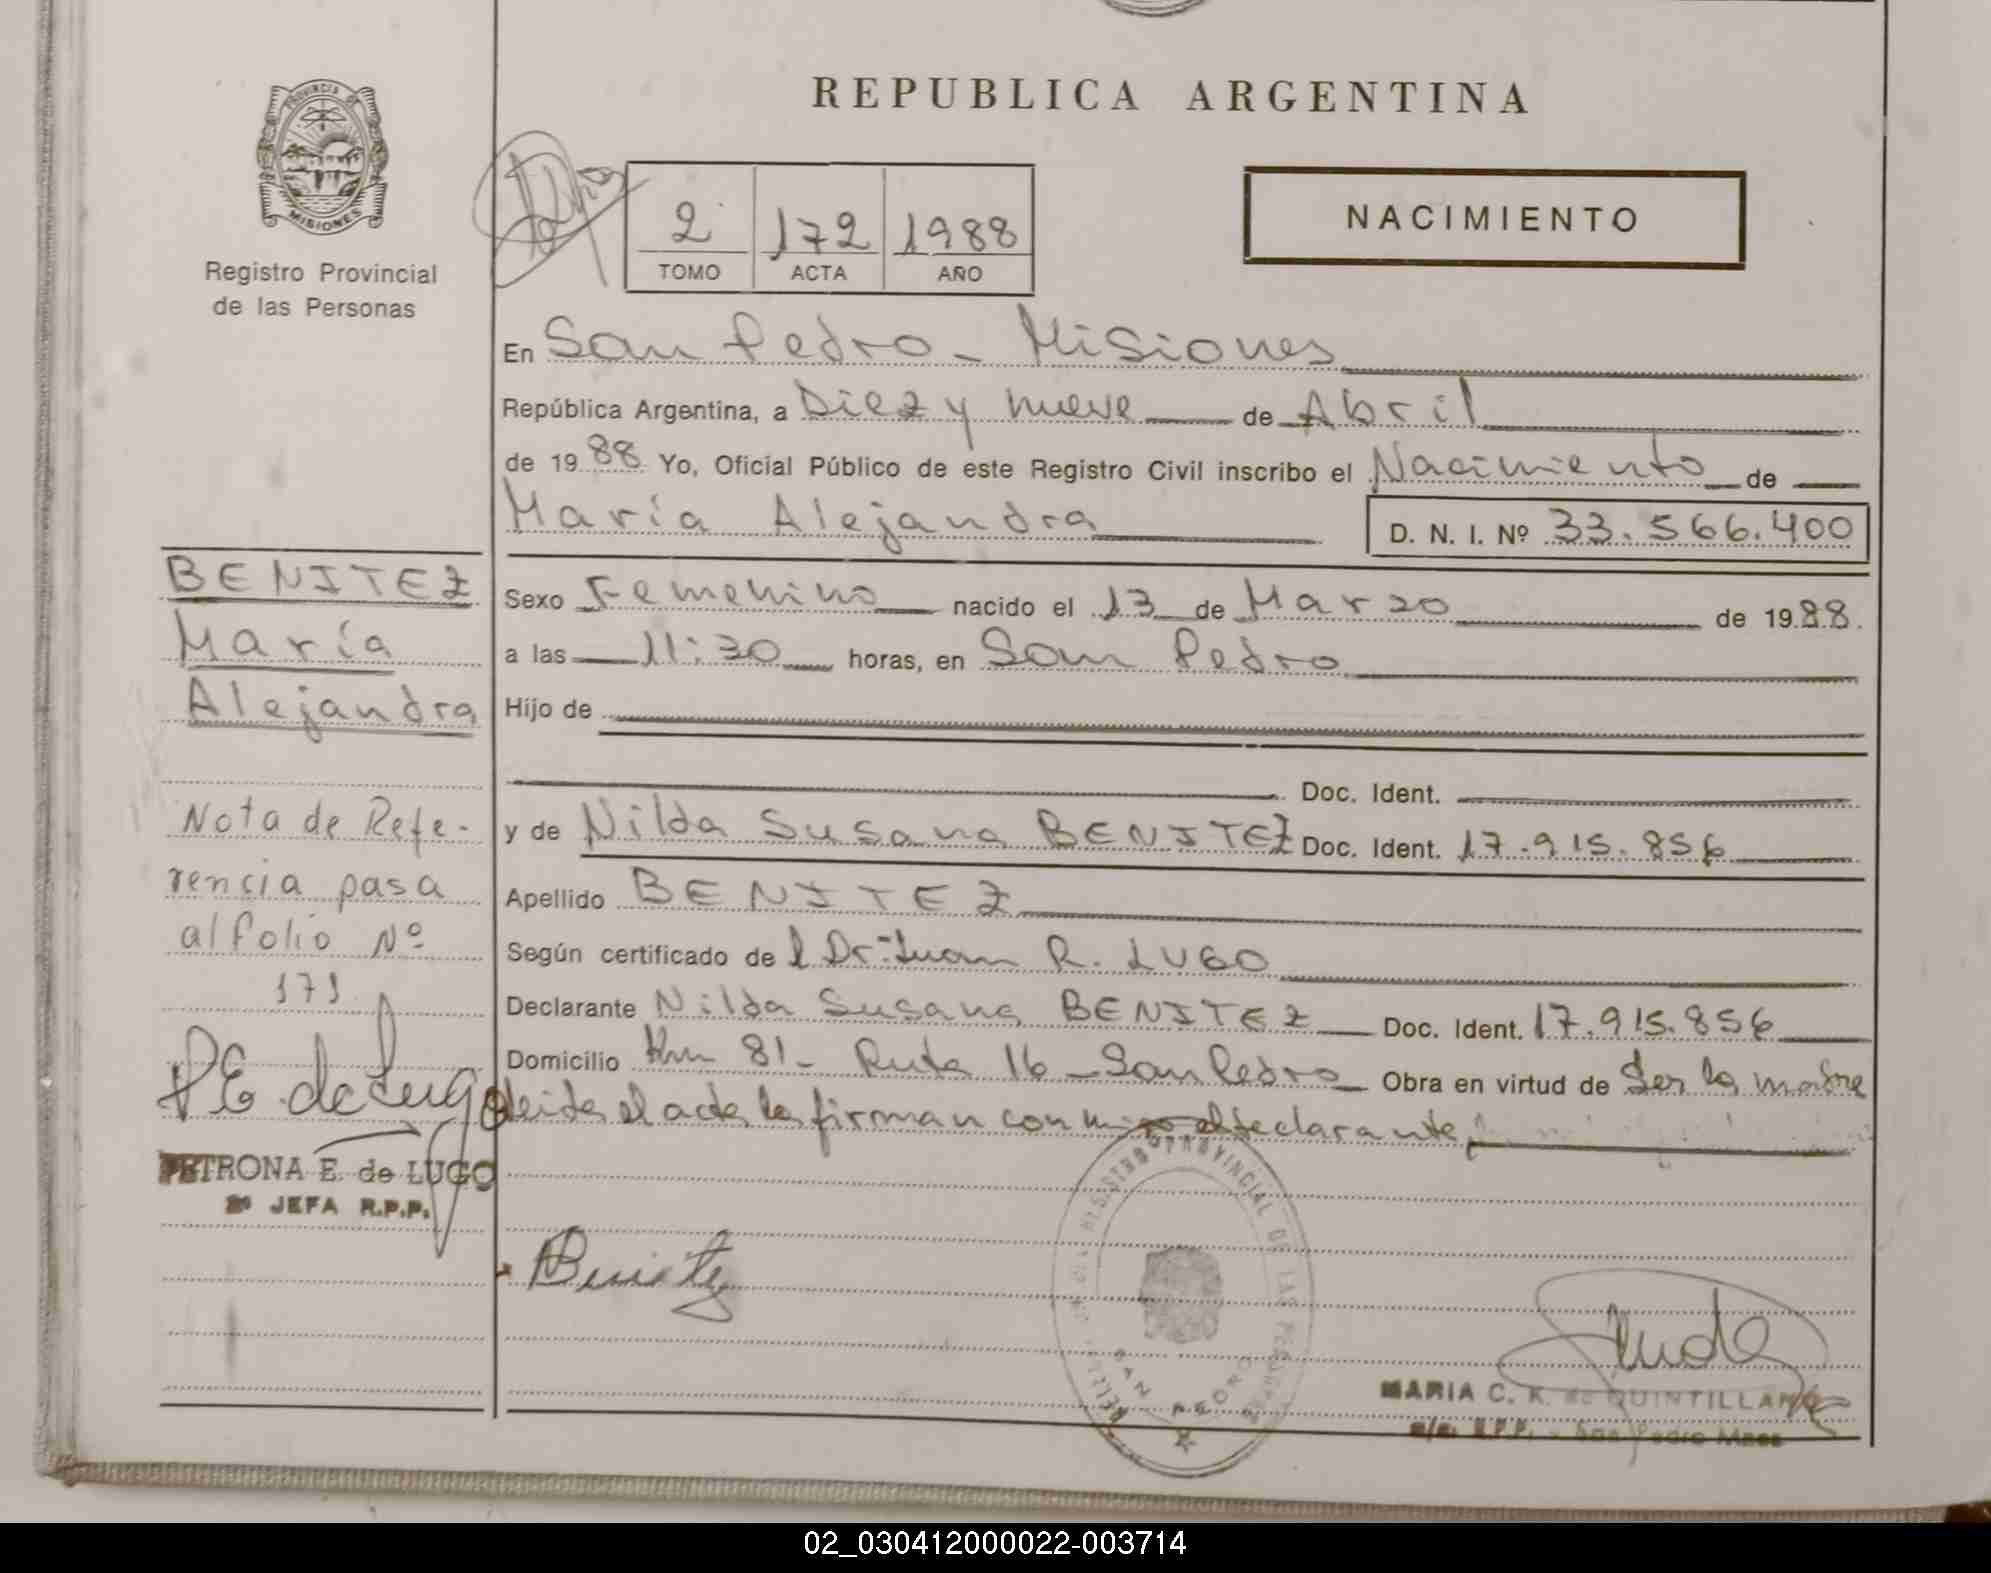 PROVINCIA DE
MISIONES
Registro Provincial
de las Personas
REPUBLICA ARGENTINA
2 172 1988
TOMO ACTA AÑO
NACIMIENTO
En San Pedro - Misiones
República Argentina, a Diez y nueve de Abril
de 1988 Yo, Oficial Público de este Registro Civil inscribo el Nacimiento de
María Alejandra D. N. I. Nº 33.566.400
BENITEZ
María
Alejandra
Sexo Femenino nacido el 13 de Marzo de 1988.
a las 11:30 horas, en San Pedro
Hijo de
Doc. Ident.
y de Nilda Susana BENITEZ Doc. Ident. 17.915.856
Apellido BENITEZ
Según certificado de l Dr. Juan R. LUGO
Declarante Nilda Susana BENITEZ Doc. Ident. 17.915.856
Domicilio Km 81 - Ruta 16 - San Pedro Obra en virtud de Ser la madre
leida el acta la firman con migo el declarante
Nota de Refe-
rencia pasa
al folio Nº
171
P E. de Lugo
PETRONA E. de LUGO
JEFA R.P.P.
Benitez
REGISTRO PROVINCIAL DE LAS PERSONAS
SAN PEDRO
MARIA C. K. de QUINTILLAN
R.P.P. - San Pedro Mnes
02_030412000022-003714